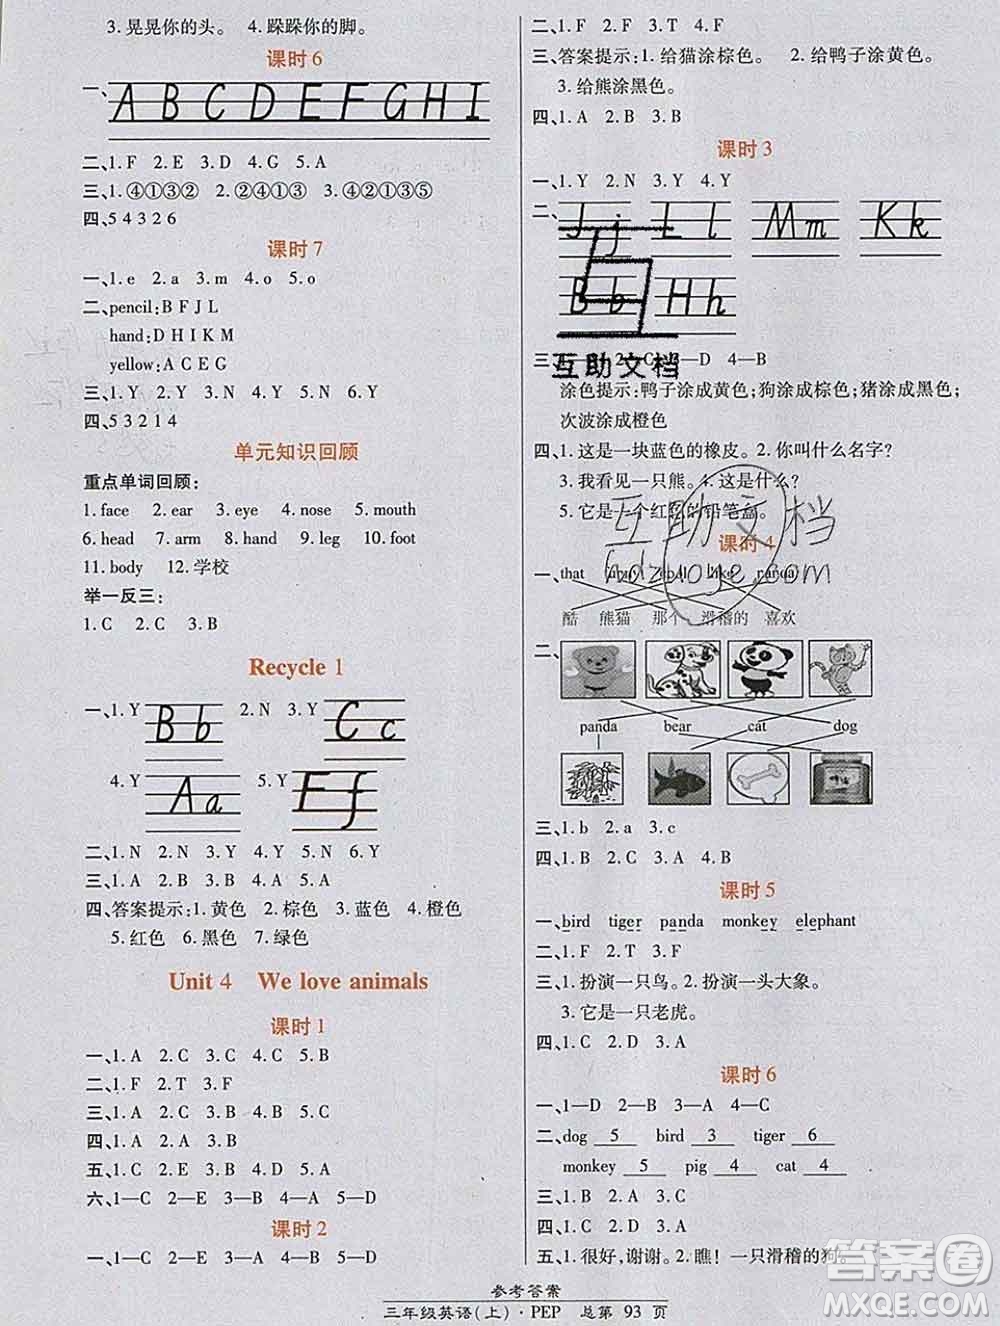 3. 晃晃你的头。 4. 跺跺你的脚。
课时 6
一、
A B C D E F G H I
二、1. F 2. E 3. D 4. G 5. A
三、1. ④①③② 2. ②④①③ 3. ④②①③⑤
四、5 4 3 2 6
课时 7
一、1. e 2. a 3. m 4. o 5. o
二、pencil: B F J L
hand: D H I K M
yellow: A C E G
三、1. Y 2. Y 3. Y 4. N 5. N
四、5 3 2 1 4
单元知识回顾
重点单词回顾:
1. face 2. ear 3. eye 4. nose 5. mouth
6. head 7. arm 8. hand 9. leg 10. foot
11. body 12. 学校
举一反三:
1. C 2. C 3. B
Recycle 1
一、1. Y Bb 2. N 3. Y Cc
4. Y Aa 5. Y Ff
二、1. N 2. N 3. Y 4. Y 5. N 6. Y
三、1. A 2. C 3. A 4. C 5. A
四、答案提示: 1. 黄色 2. 棕色 3. 蓝色 4. 橙色
5. 红色 6. 黑色 7. 绿色
Unit 4 We love animals
课时 1
一、1. A 2. C 3. C 4. C 5. B
二、1. F 2. T 3. F
三、1. A 2. C 3. B 4. A 5. C
四、1. A 2. A 3. B
五、1. C 2. E 3. B 4. A 5. D
六、1—C 2—E 3—B 4—A 5—D
课时 2
一、1—C 2—E 3—B 4—A 5—D
二、1. F 2. F 3. T 4. F
三、答案提示: 1. 给猫涂棕色。 2. 给鸭子涂黄色。
3. 给熊涂黑色。
四、1. A 2. A 3. B 4. B
课时 3
一、1. Y 2. N 3. Y 4. Y
二、
Jj Ll Mm Kk
Bb Hh
三、 2—C 3—D 4—B
互助文档
涂色提示: 鸭子涂成黄色; 狗涂成棕色; 猪涂成黑色;
次波涂成橙色
四、1. 这是一块蓝色的橡皮。 2. 你叫什么名字?
3. 我看见一只熊。 4. 这是什么?
5. 它是一个红色的铅笔盒。
互助文档
课时 4
hdzuoye.com
一、that
酷 熊猫 那个 滑稽的 喜欢
二、
panda bear cat dog
三、1. b 2. a 3. c
四、1. B 2. C 3. A 4. B
课时 5
一、bird tiger panda monkey elephant
二、1. F 2. T 3. F
三、1. 扮演一只鸟。 2. 扮演一头大象。
3. 它是一只老虎。
四、1. C 2. D 3. A
课时 6
一、1—D 2—B 3—A 4—C
二、dog 5 bird 3 tiger 6
monkey 5 pig 4 cat 4
三、1. B 2. A 3. C
四、1. C 2. D 3. A
五、1. 很好, 谢谢。 2. 瞧! 一只滑稽的狗。
参考答案
三年级英语(上)·PEP 总第 93 页
答案圈
MXQE.COM